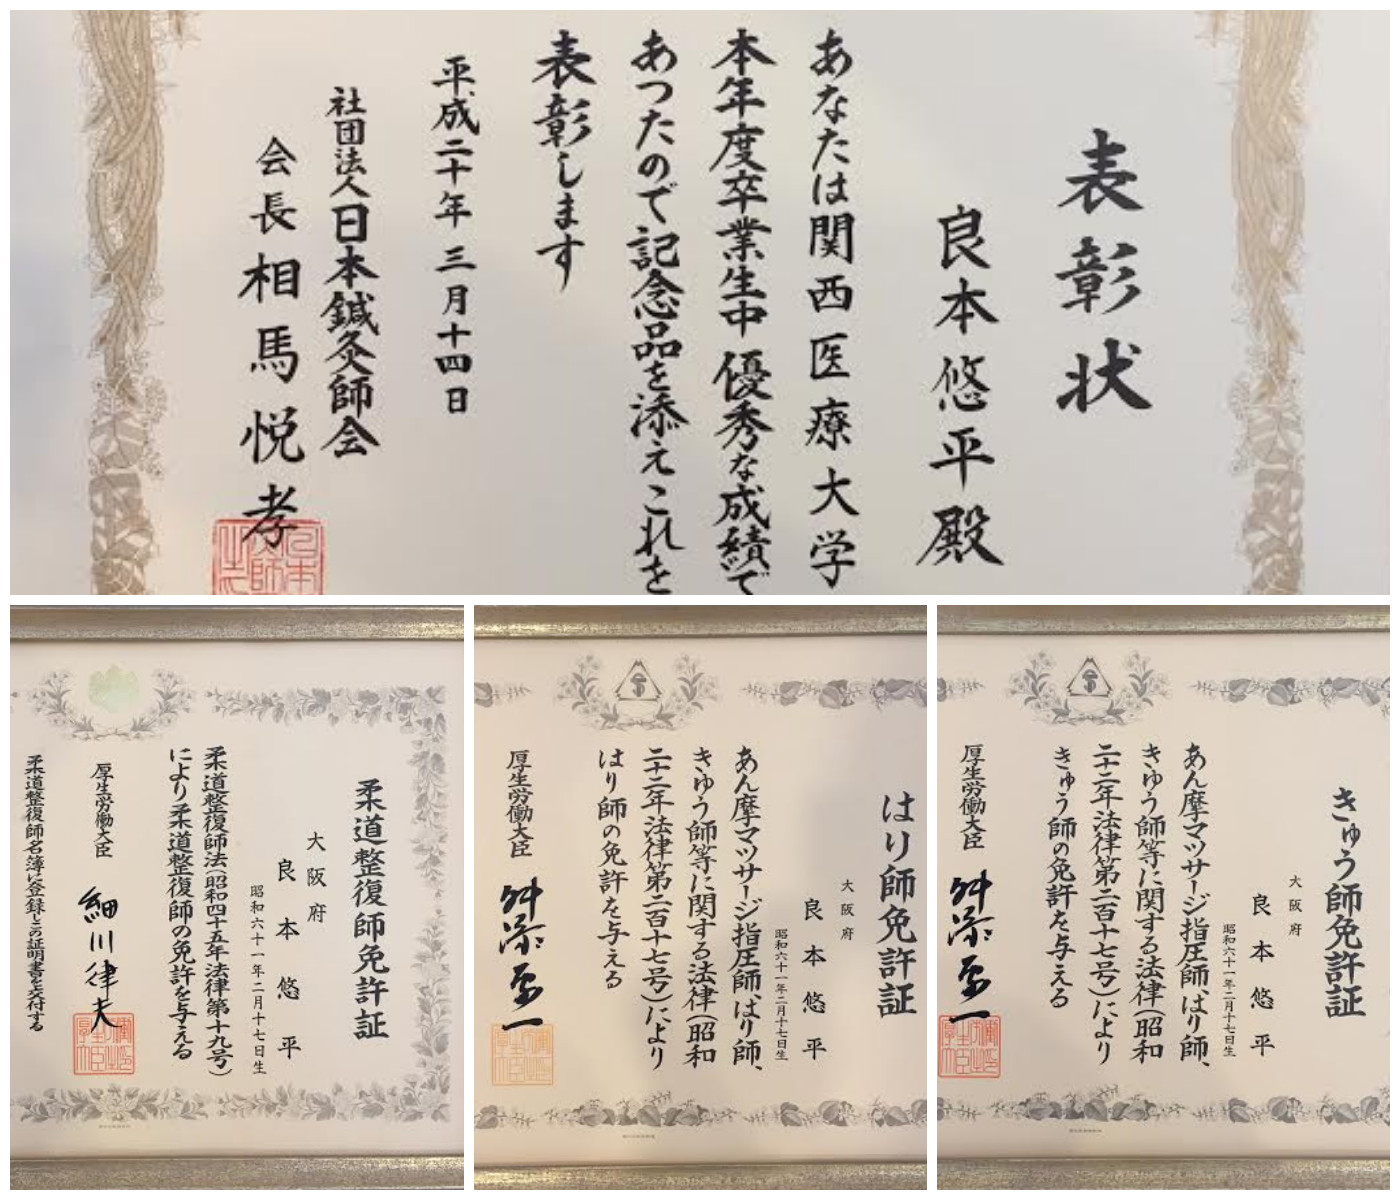 表彰状
良本悠平殿
あなたは関西医療大学
本年度卒業生中優秀な成績で
あつたので記念品を添えこれを
表彰します
平成二十年三月十四日
社団法人日本鍼灸師会
会長相馬悦孝
柔道整復師免許証
大阪府
良本悠平
昭和六十一年二月十七日生
柔道整復師法(昭和四十五年法律第十九号)
により柔道整復師の免許を与える
厚生労働大臣
細川律夫
柔道整復師名簿に登録しこの証明書を交付する
はり師免許証
大阪府
良本悠平
昭和六十一年二月十七日生
あん摩マツサージ指圧師、はり師、
きゆう師等に関する法律(昭和
二十二年法律第二百十七号)により
はり師の免許を与える
厚生労働大臣
舛添要一
きゅう師免許証
大阪府
良本悠平
昭和六十一年二月十七日生
あん摩マツサージ指圧師、はり師、
きゆう師等に関する法律(昭和
二十二年法律第二百十七号)により
きゅう師の免許を与える
厚生労働大臣
舛添要一